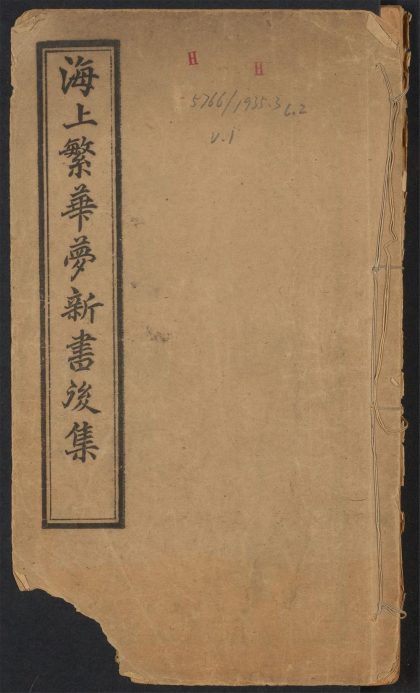 海上繁華夢新書後集
H H
5766/1935.3 c.2
v.1